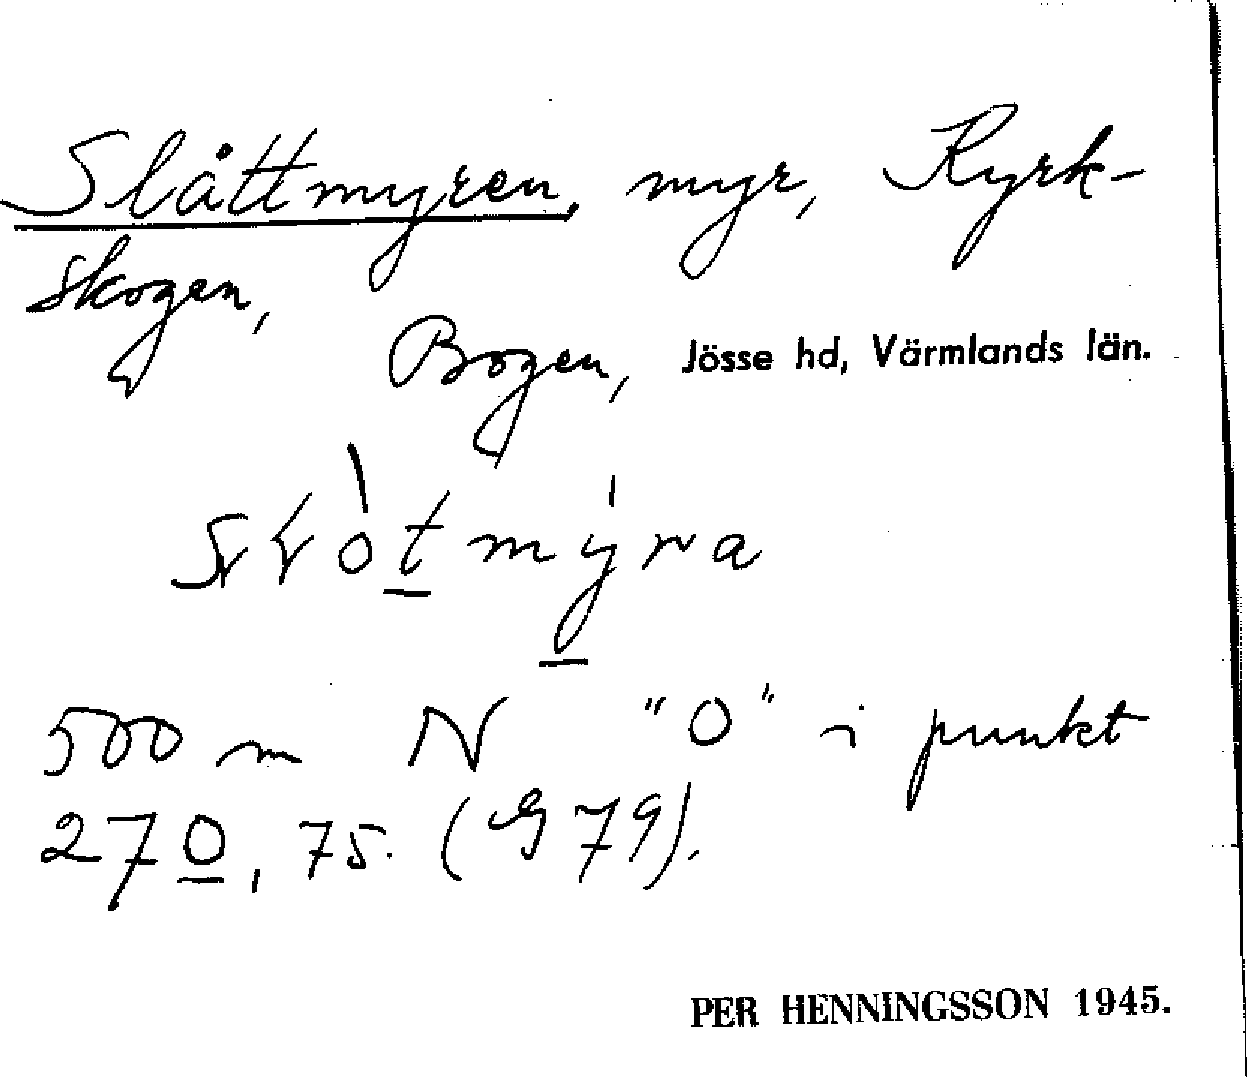 Slåttmyren, myr, Kyrk-
skogen,
Bogen, Jösse hd, Värmlands län.
500 m N "O" i punkt
270, 75. (G 79).
PER HENNINGSSON 1945.